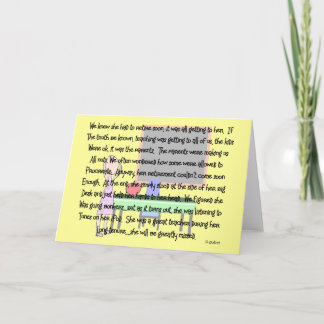 We knew she had to retire soon, it was all getting to her. If
The truth be known, teaching was getting to all of us, the kids
Were ok, it was the parents. The parents were making us
All nuts. We often wondered how some were allowed to
Procreate. Anyway, her retirement couldn't come soon
Enough. At the end she rarely stood at the side of her big
Desk and just held hands to her heart. We figured she
Was going bonkers...but as it turns out, she was listening to
Tunes on her iPod. She was a great teacher during her
Long tenure...she will be greatly missed.